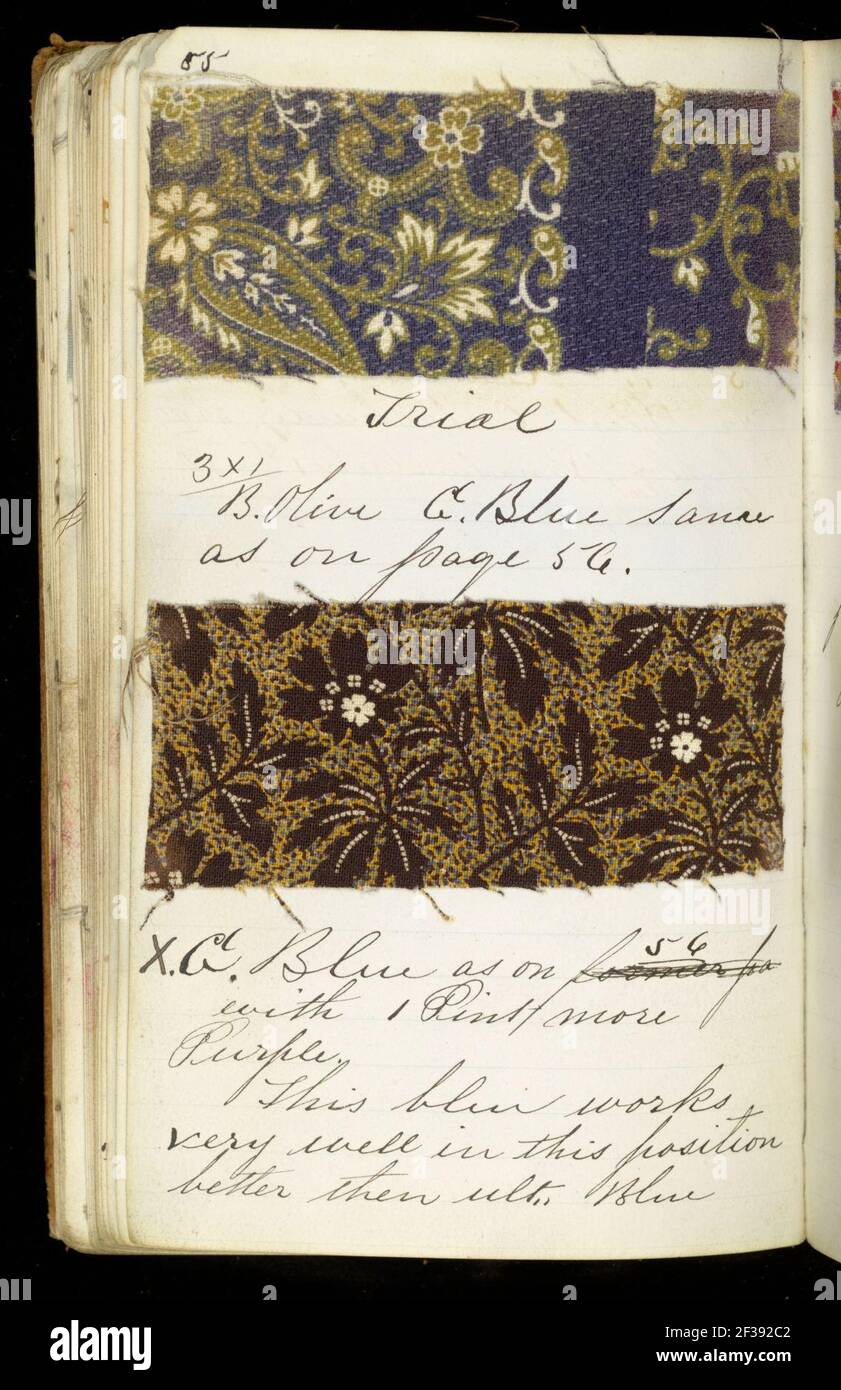 55
Trial
3 x 1
B. Olive Ct. Blue same
as on page 56.
56
X. Ct. Blue as on former pa
with 1 Pint more
Purple.
This blue works
very well in this position
better then ult. Blue
a
alamy
alamy
Image ID: 2F392C2
www.alamy.com